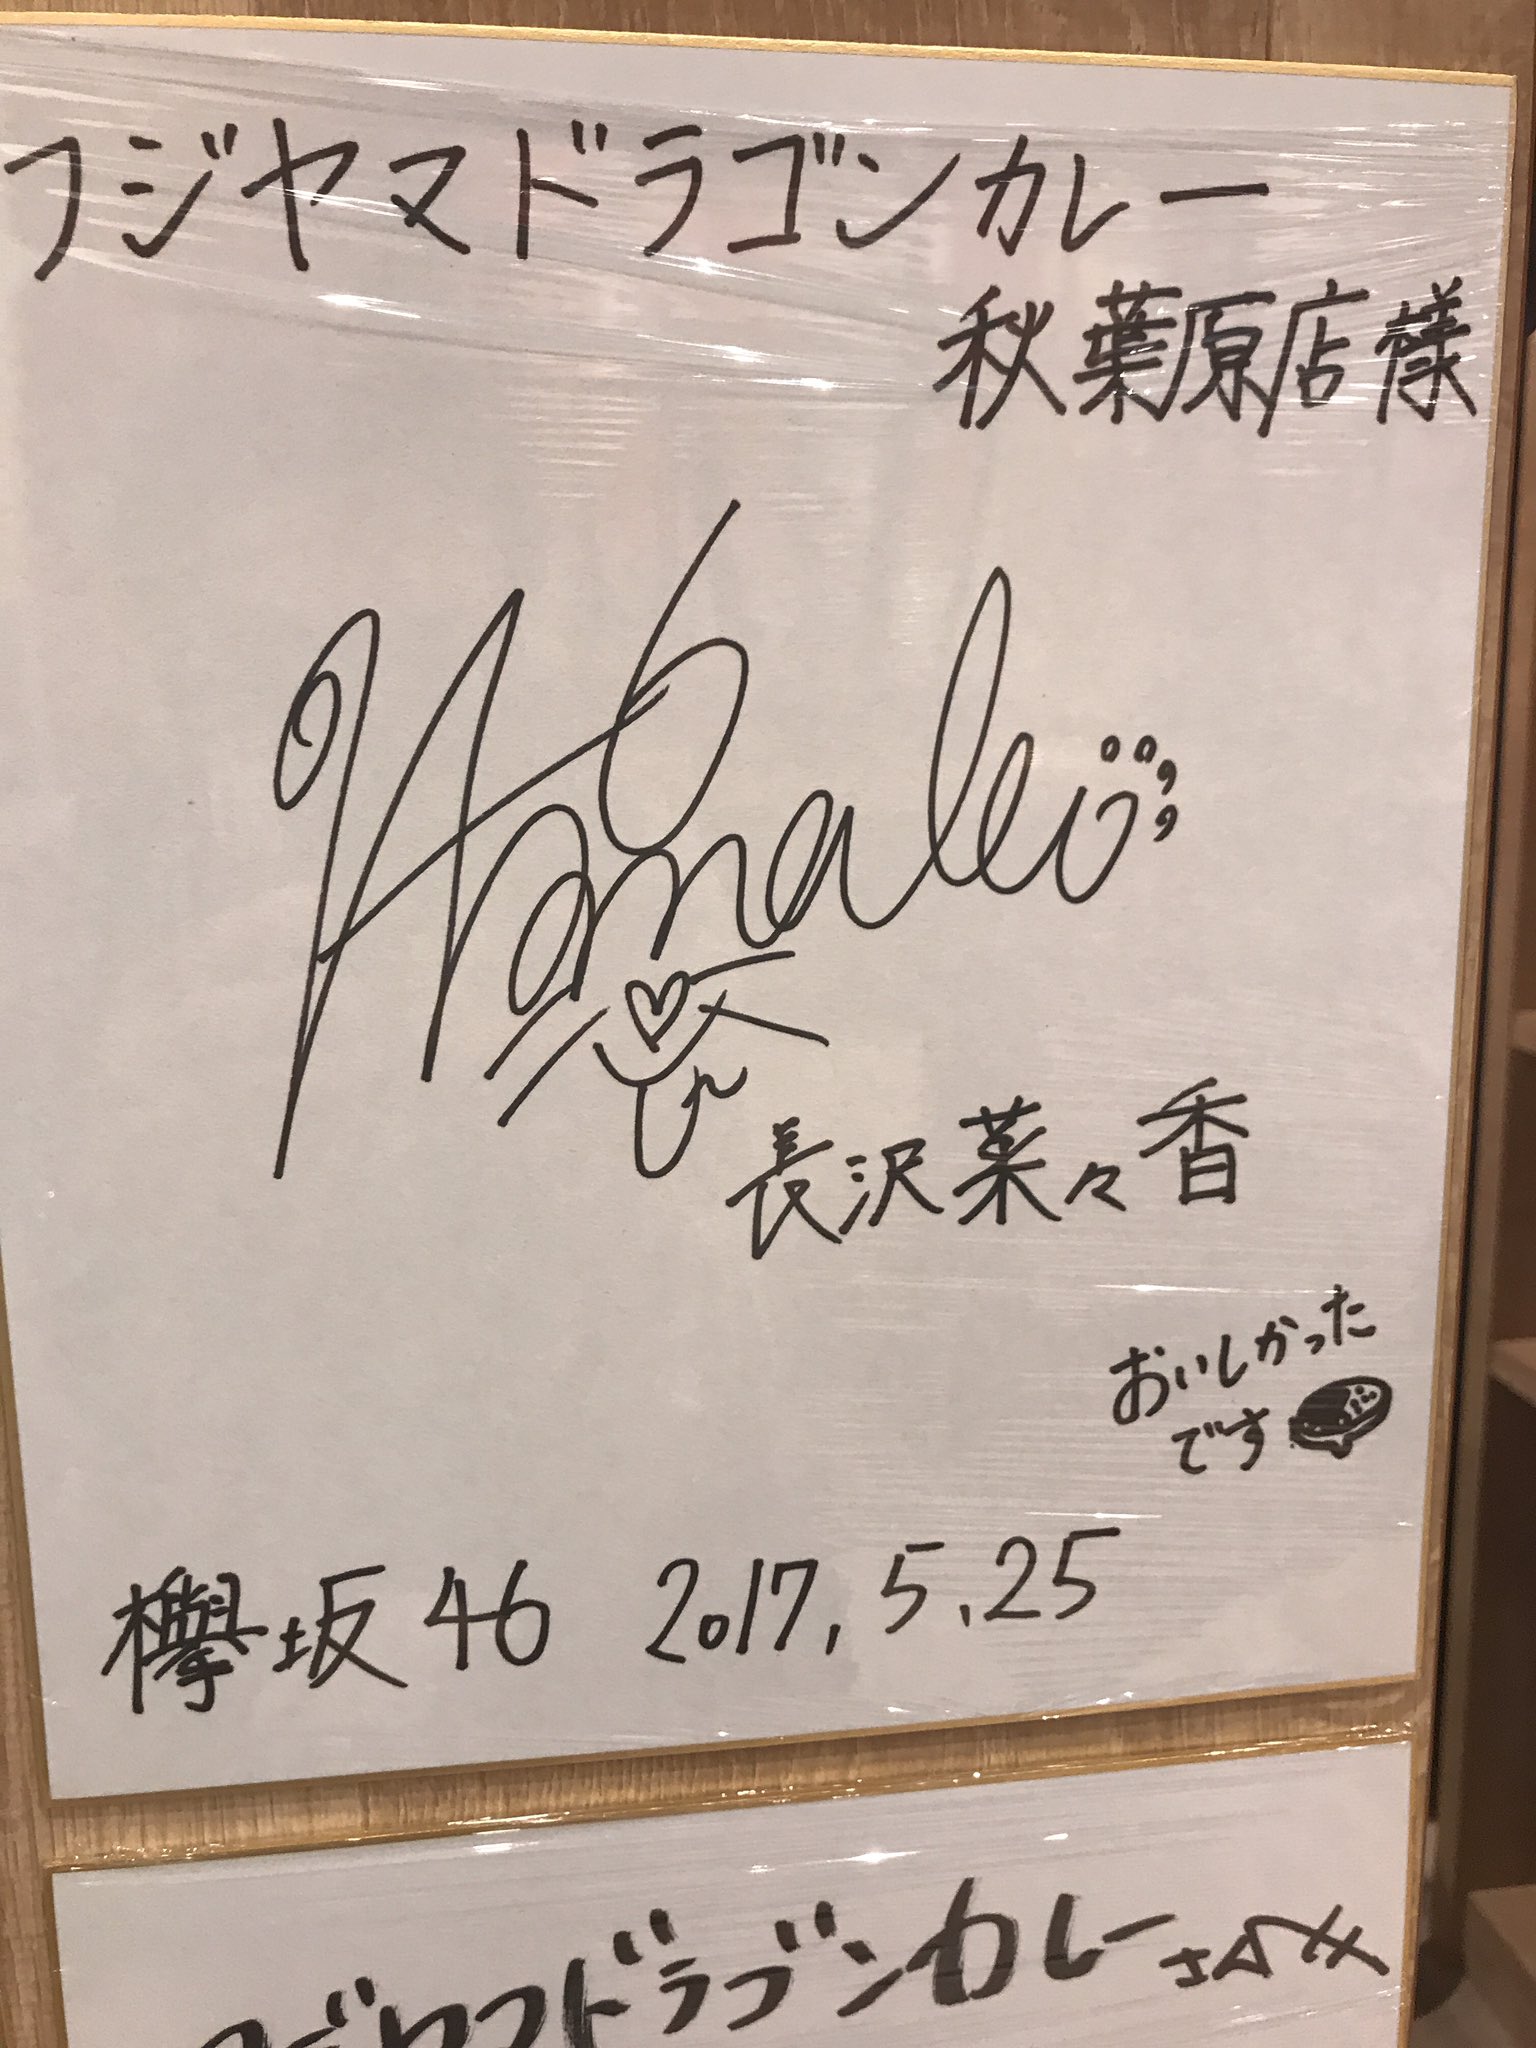 フジヤマドラゴンカレー
秋葉原店様
長沢菜々香
おいしかった
です
欅坂46 2017.5.25
フジヤマドラゴンカレーさん